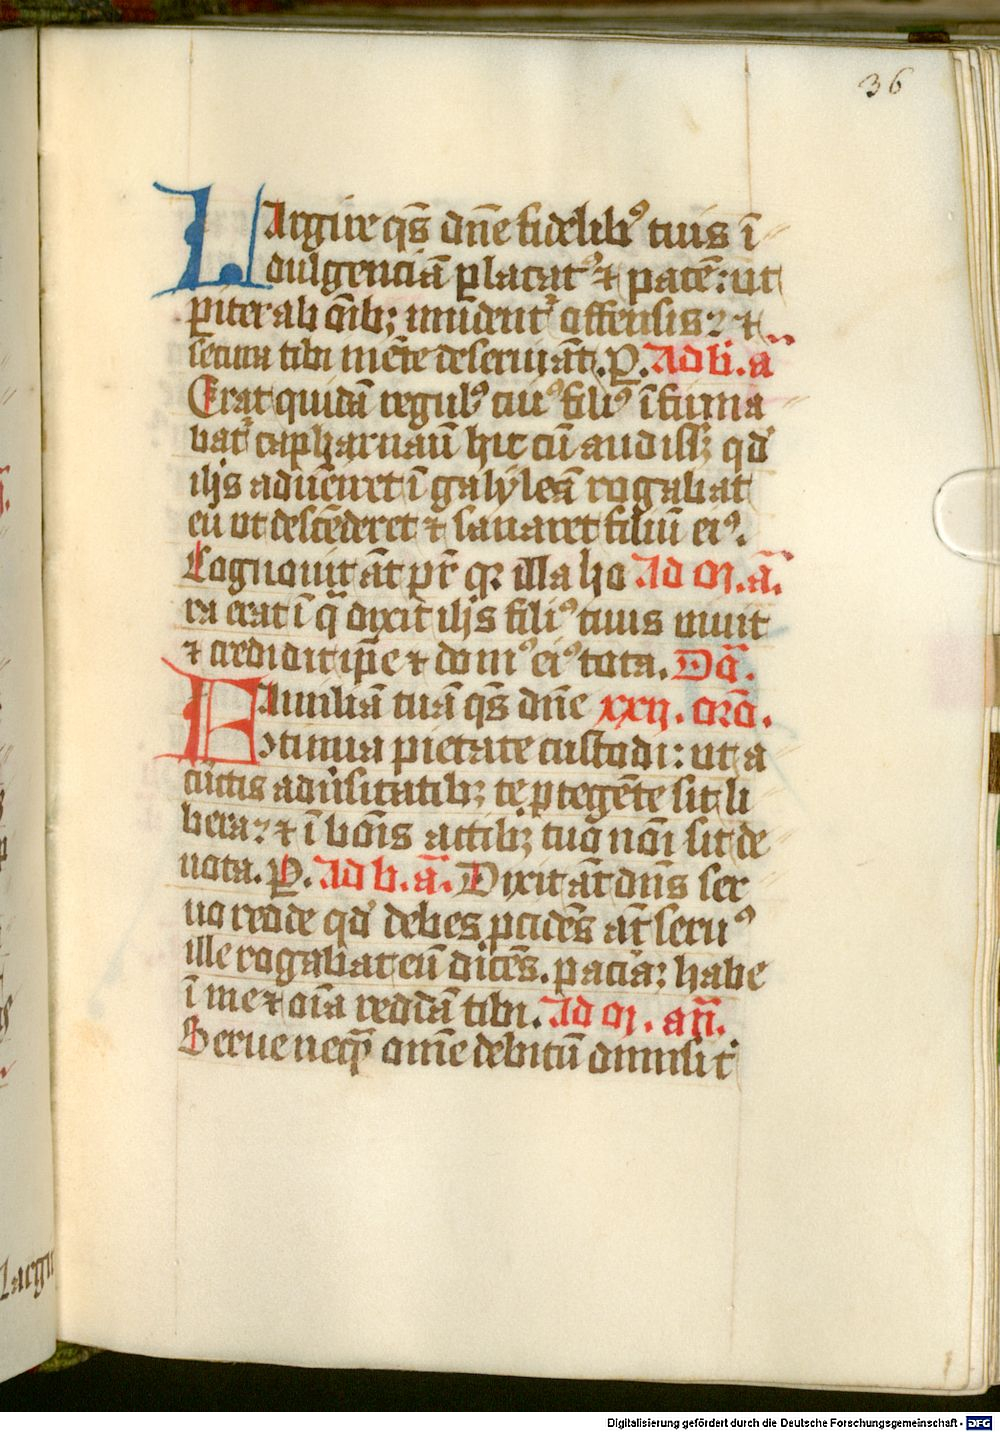 36
LArgire qs̄ dn̄e fidelibꝰ tuis ī
dulgenciā placatꝰ ⁊ pacē: ut
ꝑiter ab om̄ibꝫ mūdent᷑ offensis ⁊
secura tibi mēte deseruiāt. P. Ad b. a̅
Erat quidā regulꝰ cuiꝰ filiꝰ īfirma
bat᷑ capharnaū hic cū audissꝫ qd'
ihs aduēiret ī galyleā rogabat
eū ut descēderet ⁊ sanaret filiū eiꝰ.
Cognouit āt pr̄ qꝛ illa ho Ad m. a̅.
ra erat ī q̄ dixit ihs filiꝰ tuus uiuit
⁊ credidit ip̄e ⁊ domꝰ eiꝰ tota. Dc̄a.
FAmiliā tuā qs̄ dn̄e xxij. orō.
ꝯtinua pietate custodi: ut a
cūctis aduersitatibꝫ te ꝓtegēte sit li
bera: ⁊ ī bonis actibꝫ tuo noī sit de
uota. P. Ad b. a̅. Dixit āt dn̄s ser
uo redde qd' debes ꝓcidēs āt seruꝰ
ille rogabat eū dicēs. paciā: habe
ī me ⁊ oīa reddā tibi. Ad m. an̄.
Serue neqꝫ̄ om̄e debitū dimisi t'
Largir
Digitalisierung gefördert durch die Deutsche Forschungsgemeinschaft - DFG